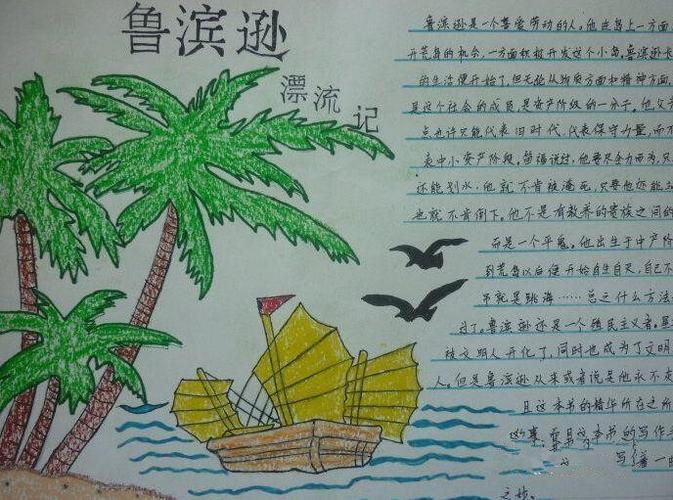 鲁滨逊
漂流记
鲁滨逊是一个喜爱劳动的人。他在岛上一方面
开荒岛的机会,一方面积极开发这个小岛,鲁滨逊卡
的生活便开始了,但无论从物质方面和精神方面,
是这个社会的成员,是资产阶级的一分子,他父亲
点也许只能代表旧时代,代表保守力量,而不
表中小资产阶段。笛福说过,他要尽全力而为,只
还能划水,他就不肯被淹死,只要他还能
也就不肯倒下。他不是有教养的贵族之间的
而是一个平庸。他出生于中产阶
到荒岛以后便开始自生自灭,自己不
不就是跳海……总之什么方法
过了。鲁滨逊还是一个殖民主义者。虽
被文明人开化了,同时也成为了文明
人。但是鲁滨逊从来或者说是他永不
且这本书的精华所在之所
这本书的写作
写着一
之梦。